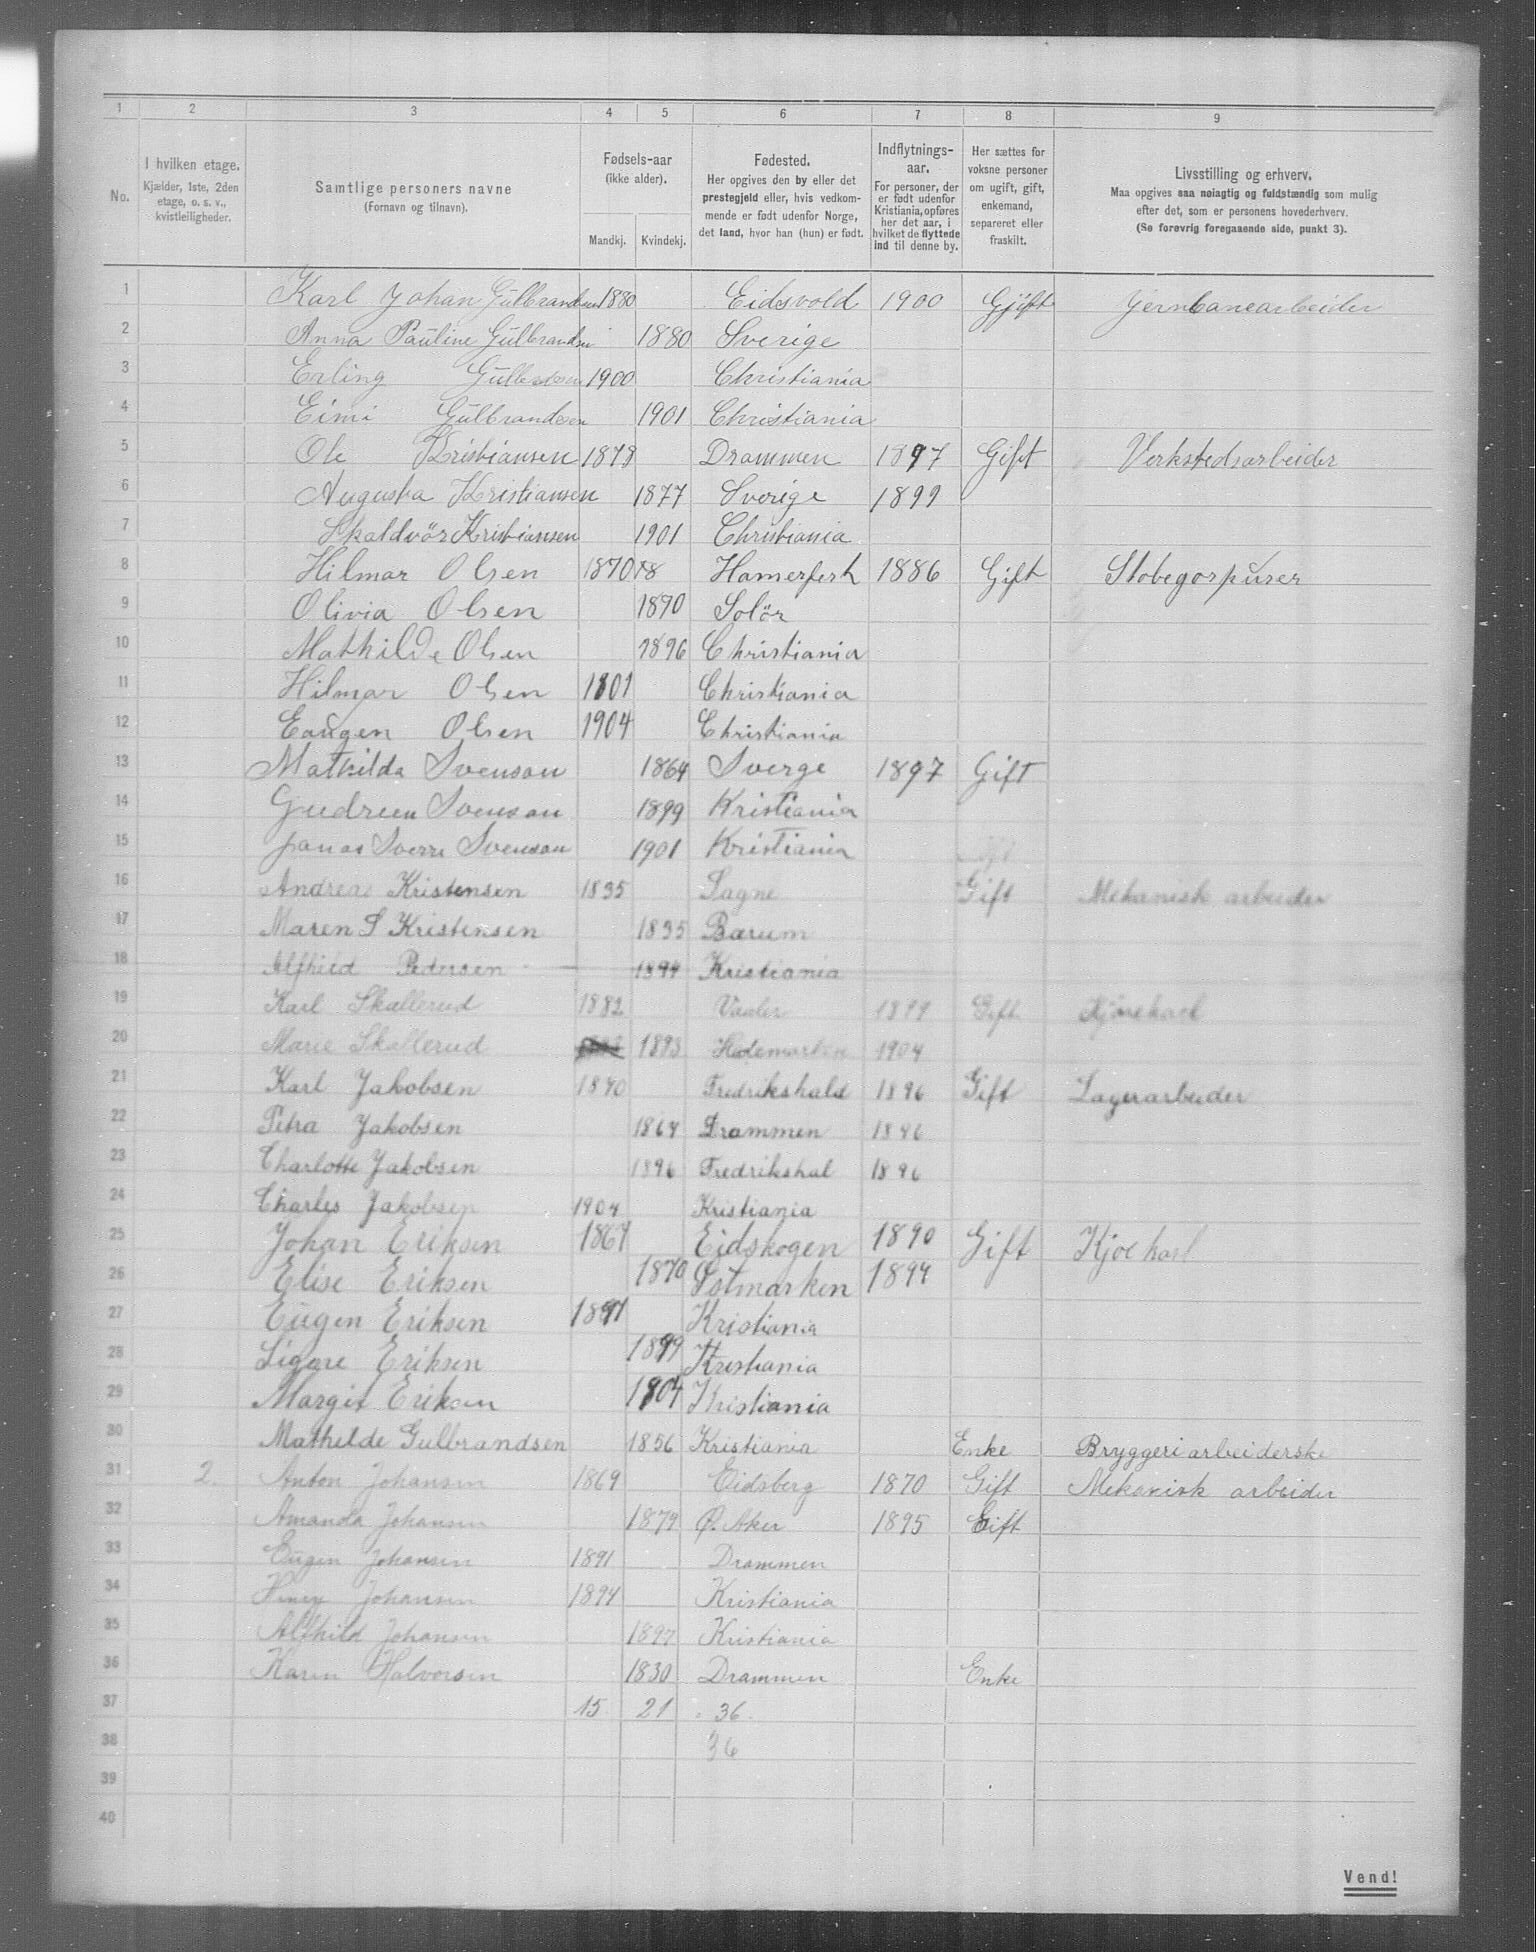 1 2 3 4 5 6 7 8 9
No.
I hvilken etage.
Kjælder, 1ste, 2den
etage, o. s. v.,
kvistleiligheder.
Samtlige personers navne
(Fornavn og tilnavn).
Fødsels-aar
(ikke alder).
Mandkj. Kvindekj.
Fødested.
Her opgives den by eller det
prestegjeld eller, hvis vedkom-
mende er født udenfor Norge,
det land, hvor han (hun) er født.
Indflytnings-
aar.
For personer, der
er født udenfor
Kristiania, opføres
her det aar, i
hvilket de flyttede
ind til denne by.
Her sættes for
voksne personer
om ugift, gift,
enkemand,
separeret eller
fraskilt.
Livsstilling og erhverv.
Maa opgives saa nøiagtig og fuldstændig som mulig
efter det, som er personens hovederhverv.
(Se forøvrig foregaaende side, punkt 3).
1 Karl Johan Gulbrandsen 1880 Eidsvold 1900 Gift Jernbanearbeider
2 Anna Pauline Gulbrandsen 1880 Sverige
3 Erling 1900 Christiania
4 Eimi Gulbrandsen 1901 Christiania
5 Ole Kristiansen 1878 Drammen 1897 Gift Verkstedsarbeider
6 Augusta Kristiansen 1877 Sverige 1899
7 Skaldvör Kristiansen 1901 Christiania
8 Hilmar Olsen 1870 18 Hamerfest 1886 Gift Stobegorpuser
9 Olivia Olsen 1890 Solör
10 Mathilde Olsen 1896 Christiania
11 Hilmar Olsen 1801 Christiania
12 Eaugen Olsen 1904 Christiania
13 Mathilda Svenson 1864 Sverge 1897 Gift
14 Gudreun Svenson 1899 Kristiania
15 Jonas Sverre Svenson 1901 Kristiania
16 Andreas Kristensen 1835 Sagne Gift Mekanisk arbeider
17 Maren S Kristensen 1835 Bærum
18 Alfhild Pedersen 1894 Kristiania
19 Karl Skallerud 1882 Vaaler 1899 Gift Kjørekarl
20 Marie Skallerud 1883 Hedemarken 1904
21 Karl Jakobsen 1870 Fredrikshald 1896 Gift Lagerarbeider
22 Petra Jakobsen 1864 Drammen 1896
23 Charlotte Jakobsen 1896 Fredrikshal 1896
24 Charles Jakobsen 1904 Kristiania
25 Johan Eriksen 1867 Eidskogen 1890 Gift Kjoekarl
26 Elise Eriksen 1870 Solmarken 1894
27 Eugen Eriksen 1891 Kristiania
28 Signe Eriksen 1899 Kristiania
29 Margit Eriksen 1904 Kristiania
30 Mathilde Gulbrandsen 1856 Kristiania Enke Bryggeriarbeiderske
31 2. Anton Johansen 1869 Eidsberg 1870 Gift Mekanisk arbeider
32 Amanda Johansen 1879 Ø. Aker 1895 Gift
33 Eugen Johansen 1891 Drammen
34 Henry Johansen 1894 Kristiania
35 Alfhild Johansen 1897 Kristiania
36 Karen Halvorsen 1830 Drammen Enke
37 15 21 36.
38 36
39
40
Vend!